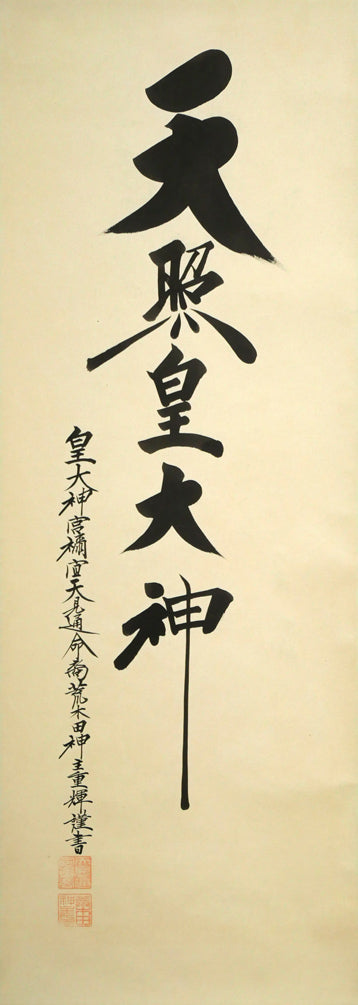 天照皇大神
皇大神宮禰宜天見通命裔荒木田神主重輝謹書